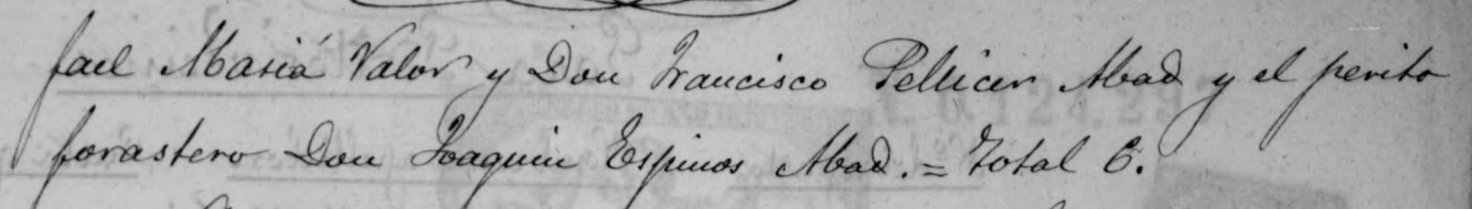 fael Masiá Valor y Don Francisco Pellicer Abad y el perito
forastero Don Joaquin Espinos Abad. = Total 6.